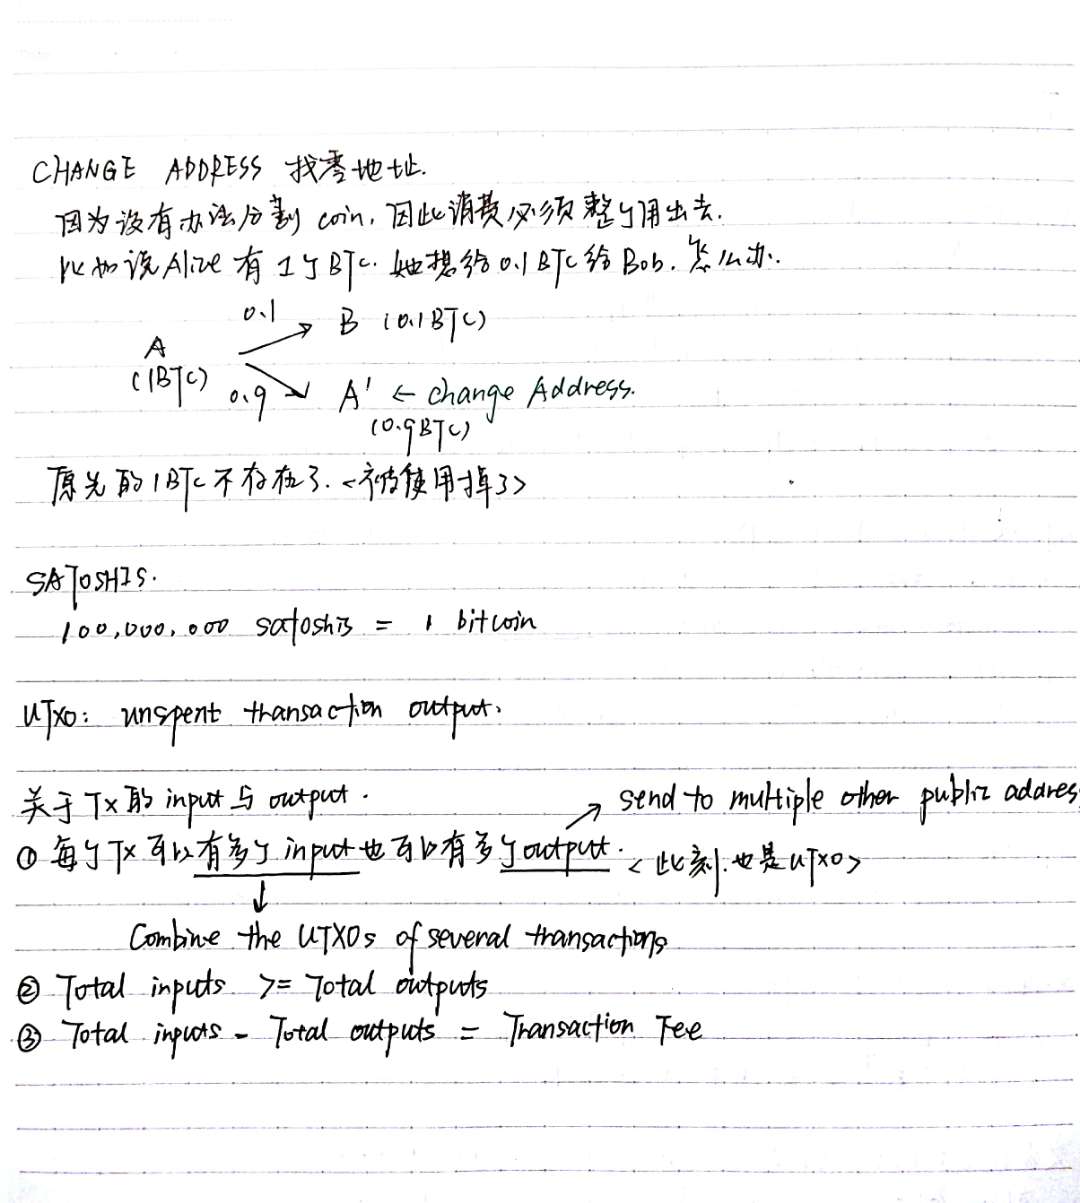 CHANGE ADDRESS 找零地址.
因为没有办法分割 coin, 因此消费必须整个用出去.
比如说 Alice 有 1个 BTC. 她想给 0.1 BTC 给 Bob. 怎么办.
0.1
B (0.1BTC)
A
(1BTC)
0.9
A' ← change Address.
(0.9BTC)
原先的 1BTC 不存在了. <被使用掉了>
SATOSHIS.
100,000,000 satoshis = 1 bitcoin
UTXO: unspent transaction output.
关于 Tx 的 input 与 output.
send to multiple other public addres
① 每个 Tx 可以有多个 input 也可以有多个 output. <此刻.也是UTXO>
Combine the UTXOs of several transactions
② Total inputs >= Total outputs
③ Total inputs - Total outputs = Transaction Fee